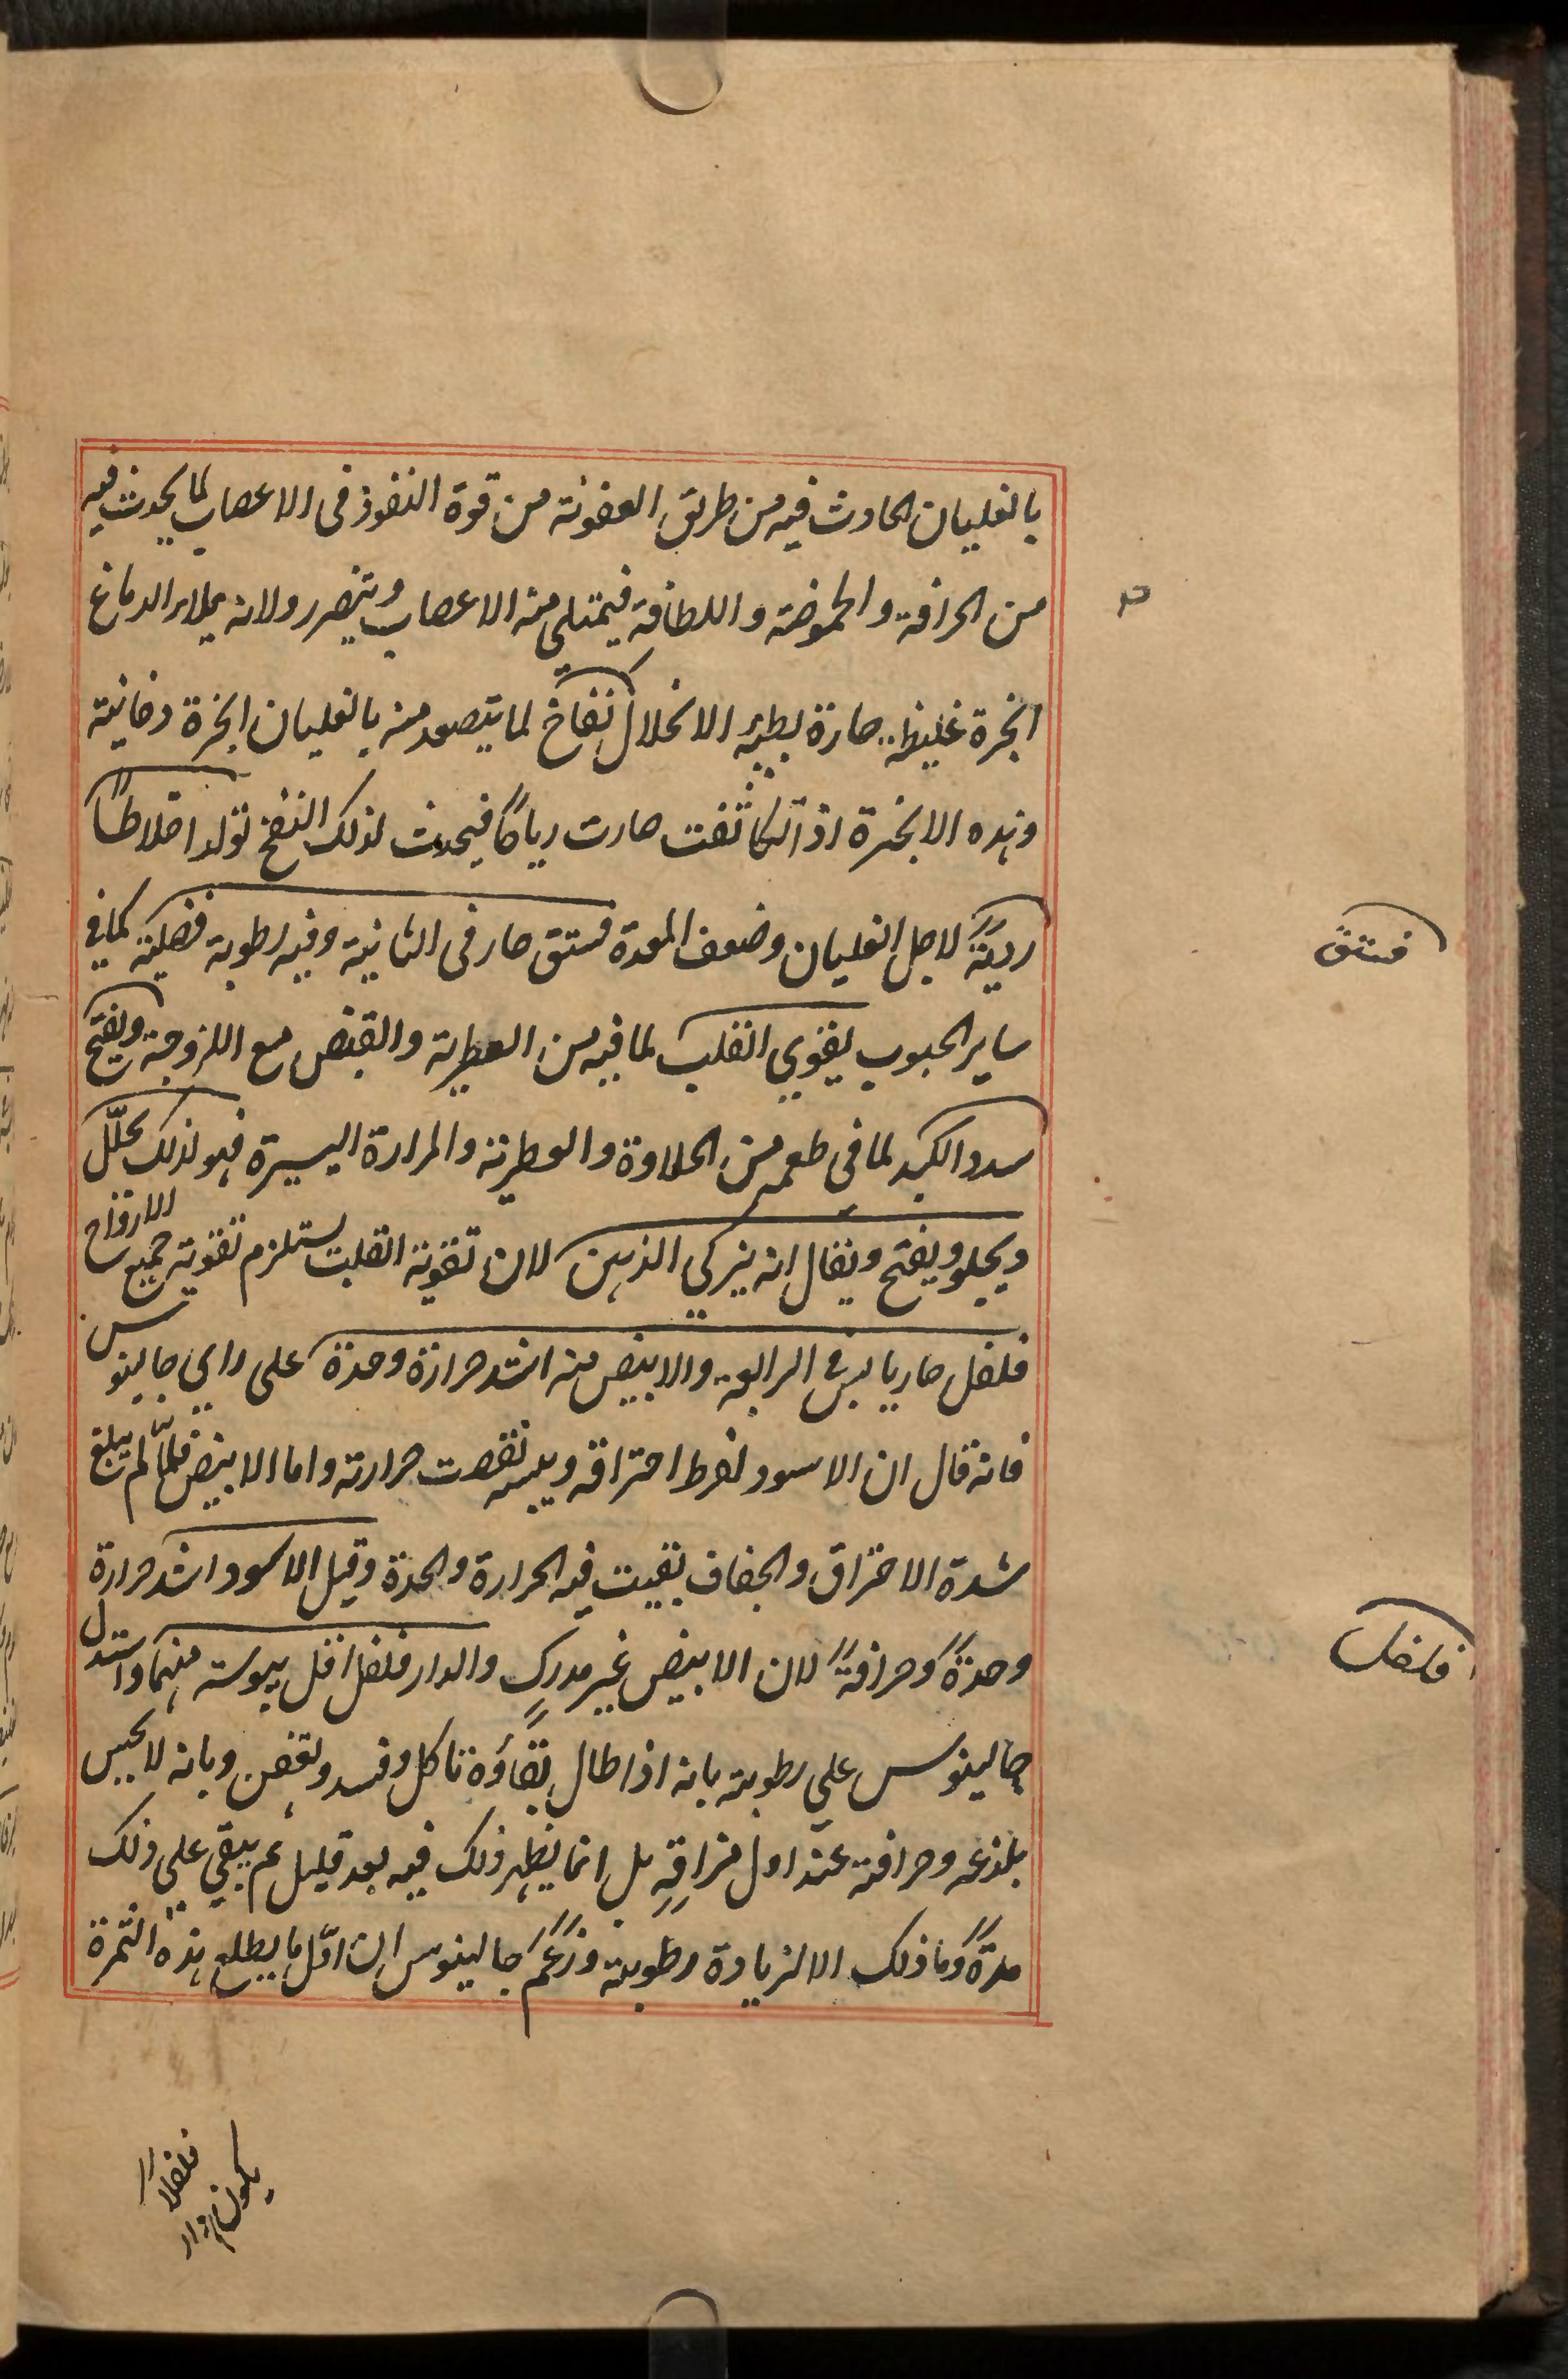 بالغليان الحادث فيه من طريق العفونة من قوة النفوذ فى الاعصاب لما يحدث فيه
من الحرافة والحموضة واللطافة فيمتلى منه الاعصاب ويتضرر ولانه يملاء الدماغ
ابخرة غليظه حارة بطيه الانحلال نفاخ لما يتصعد منه بالغليان ابخرة دخانية
وهذه الابخرة اذا تكاثفت صارت رياحًا فيحدث لذلك النفخ تولد اخلاطًا
رديّةً لاجل الغليان وضعف المعدة فستق حار فى الثانية وفيه رطوبة فضلية كما في
ساير الحبوب يقوي القلب لما فيه من العطرية والقبض مع اللزوجة ويفتح
سدد الكبد لما فى طعمه من الحلاوة والعطرية والمرارة اليسيرة فهو لذلك يحلّل
ويجلو ويفتح ويقال انه يزكي الذهن لان تقوية القلب يستلزم تقوية جميع الارواح
فلفل حار يابس فى الرابعة والابيض منه اشد حرارة وحدة على راي جالينوس
فانه قال ان الاسود لفرط احتراقه ويبسه نقصت حرارته واما الابيض فلمّا لم يبلغ
شدة الاحتراق والجفاف بقيت فيه الحرارة والحدة وقيل الاسود اشد حرارة
وحدةً وحرافةً لان الابيض غير مدرك والدار فلفل اقل يبوسة منهما واستدل
جالينوس على رطوبته بانه اذا طال بقاؤه تاكل وفسد وتعفن وبانه لا يحس
بلذعه وحرافته عند اول مذاقه بل انما يظهر ذلك فيه بعد قليل ثم يبقي على ذلك
مدةً وما ذلك الا لزيادة رطوبته وزعم جالينوس ان اوّل ما يطلع هذه الثمرة
فستق
فلفل
يكون دار
فلفلا